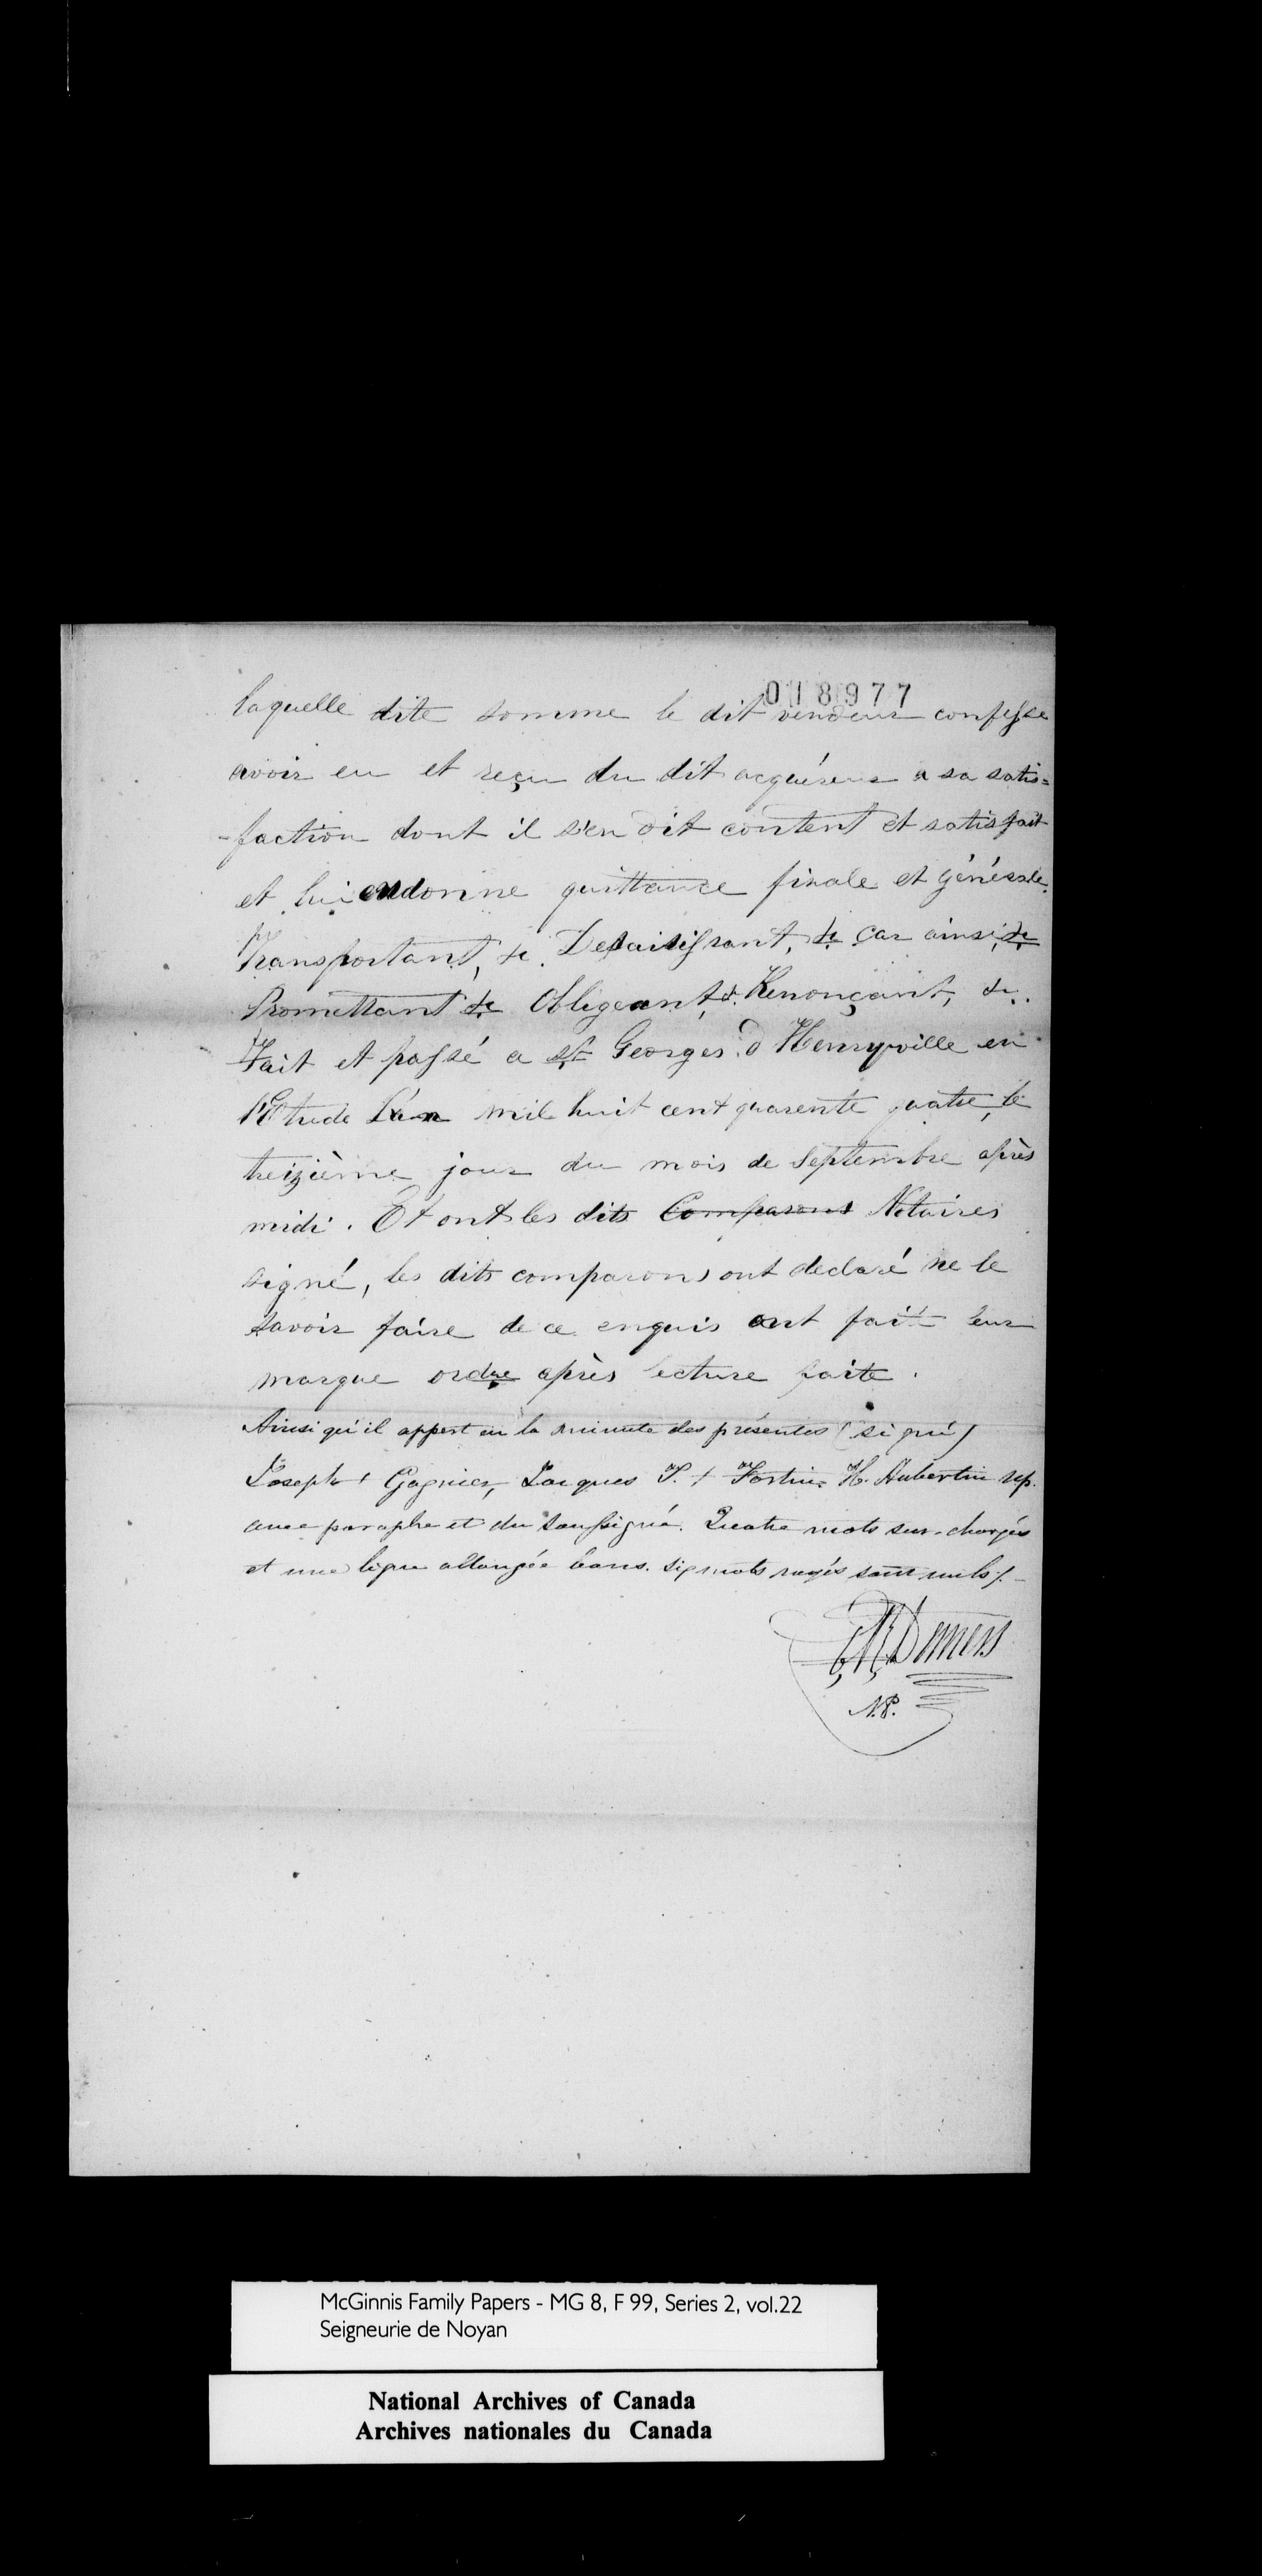 018977
laquelle dite somme le dit vendeur confesse
avoir eu et reçu du dit acquéreur a sa satis=
-faction dont il s'en dit content et satisfait
et lui endonne quittance finale et générale.
Transportant, &c. Desaisissant, &c Car ainsi &c
Promettant &c Obligeant, &. Renonçant, &c.
Fait et passé a St Georges d'Henryville en
l'Etude L'an mil huit cent quarente quatre, le
treizième jour du mois de Septembre après
midi. Et ont les dits Comparons Notaires
signé, les dits comparons ont declaré ne le
savoir faire de ce enquis ont fait leur
marque ordre après lecture faite.
Ainsi qu'il appert en la minute des présentes (signé)
Joseph + Gagnier, Jacques P. + Fortin, H. Aubertin np.
avec paraphe et du soussigné. Quatre mots sur-chargés
et une ligne allongée bons. six mots rayés sont nuls.
Demers
N.P.
McGinnis Family Papers - MG 8, F 99, Series 2, vol.22
Seigneurie de Noyan
National Archives of Canada
Archives nationales du Canada